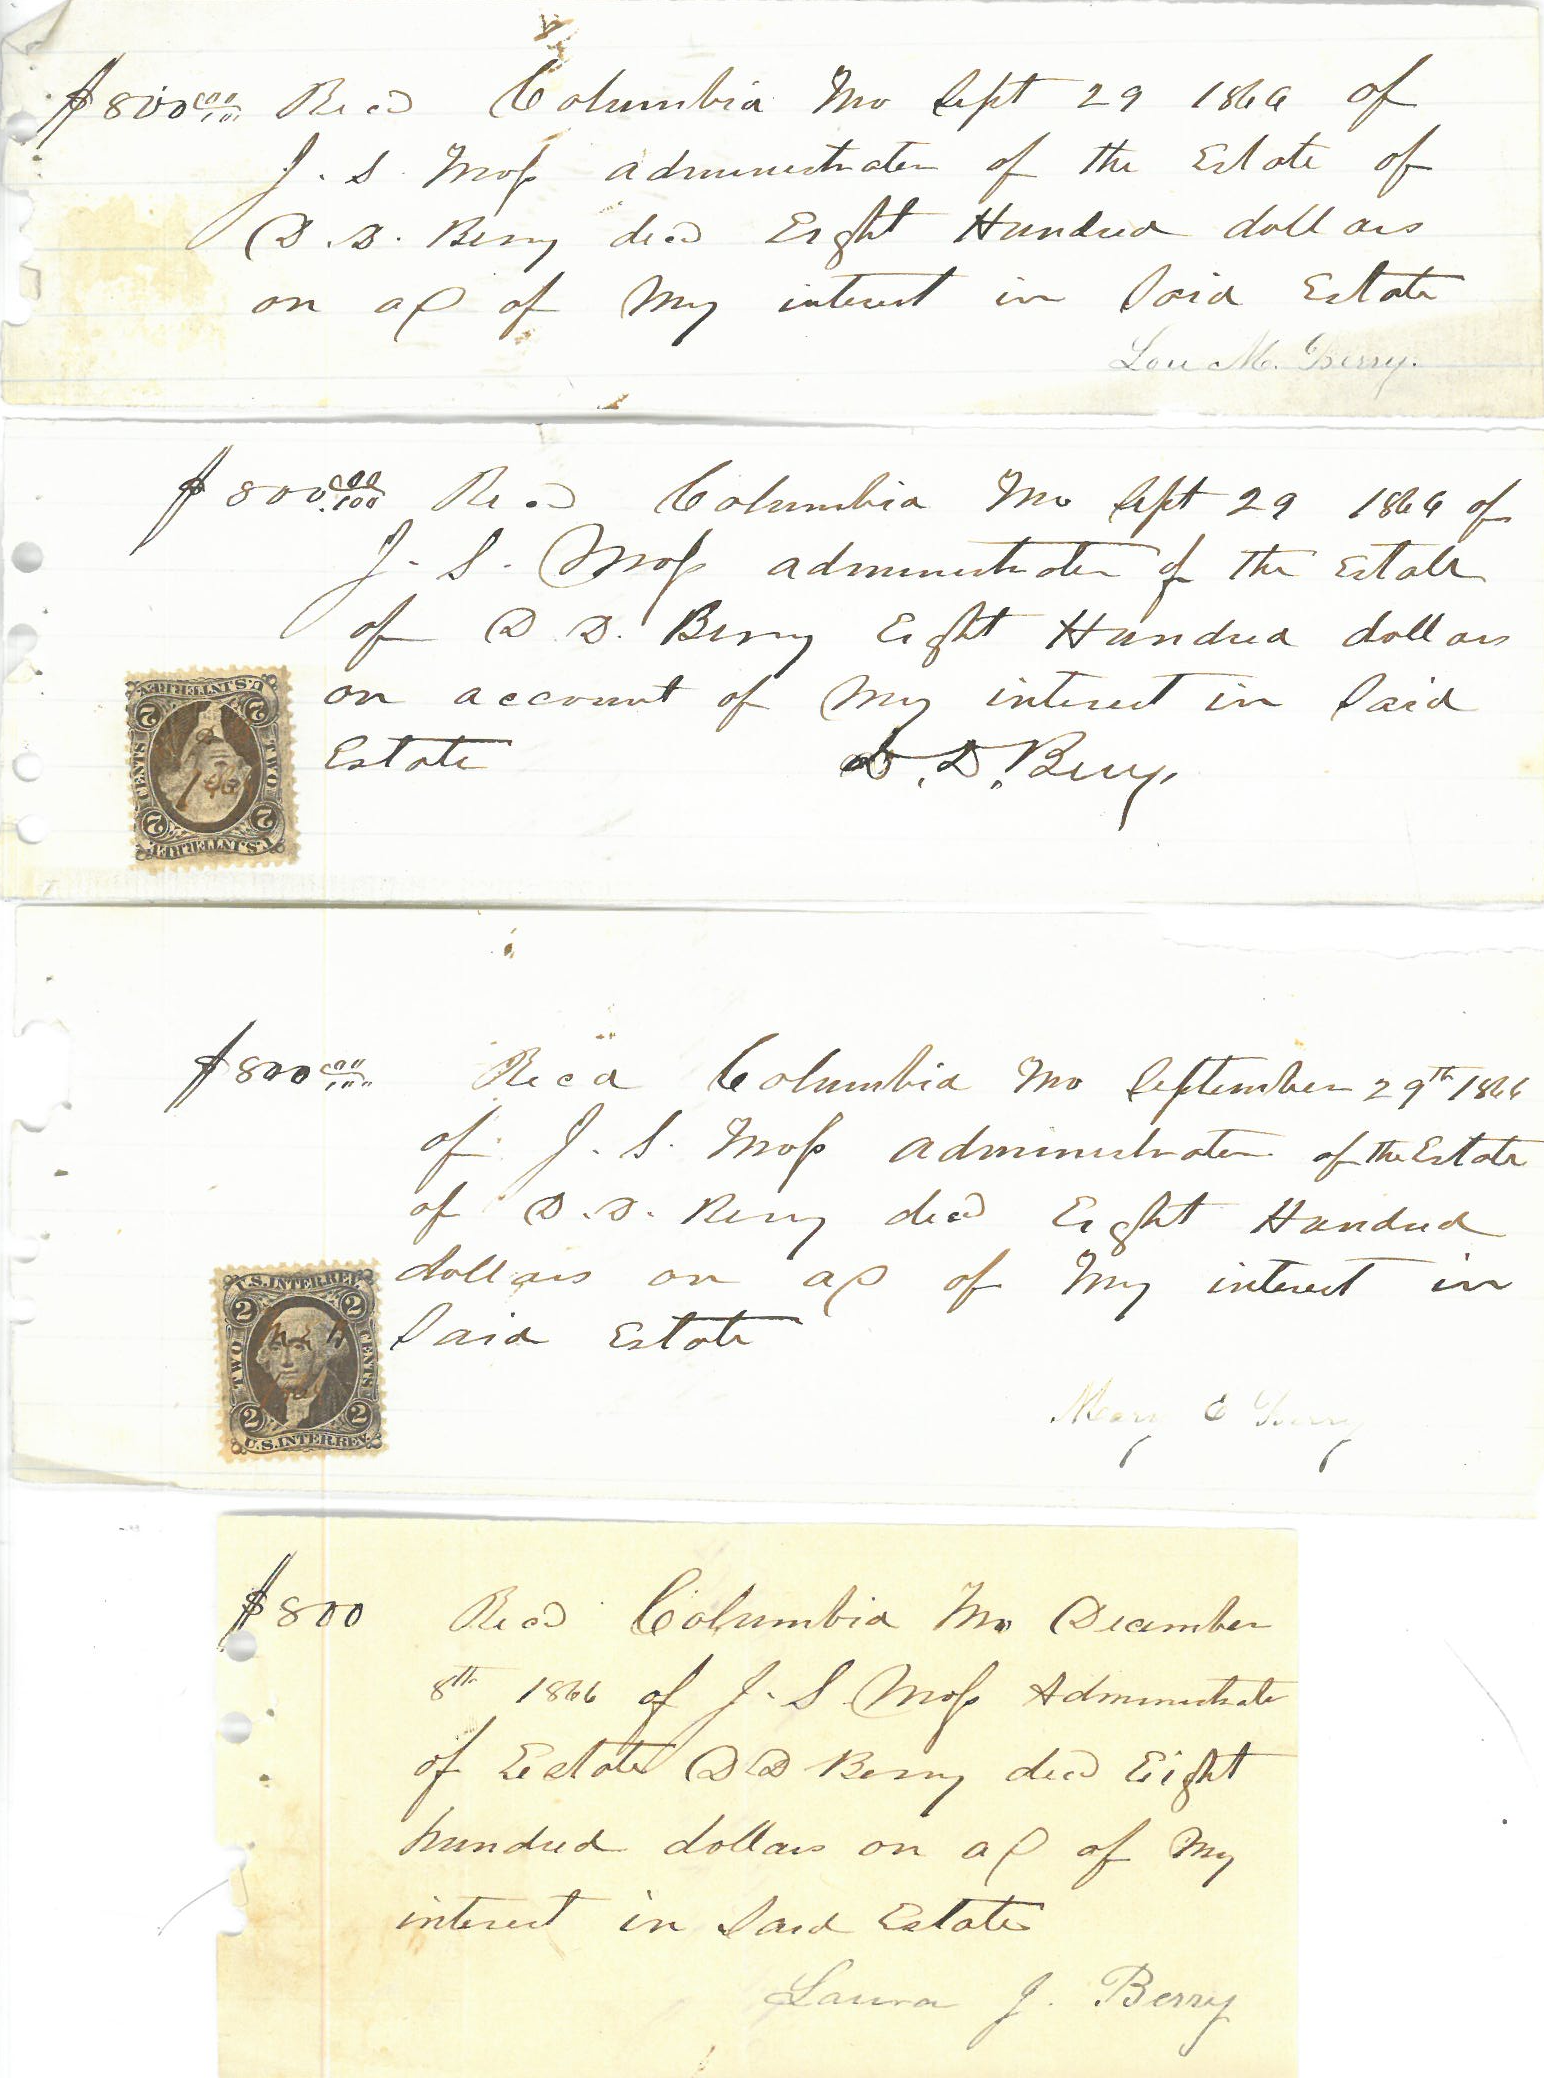 $800 00/100 Recd Columbia Mo Sept 29 1866 of
J. S. Moss administrator of the Estate of
D. D. Berry decd Eight Hundred dollars
on a/c of My interest in Said Estate
Lou M. Berry.
$800.00/100 Recd Columbia Mo Sept 29 1866 of
J. S. Moss administrator of the Estate
of D. D. Berry Eight Hundred dollars
on account of My interest in Said
Estate D. D. Berry,
U.S. INTER. REV.
2 2
TWO CENTS
2 2
U.S. INTER. REV.
$800 00/100 Recd Columbia Mo September 29th 1866
of J. S. Moss administrator of the Estate
of D. D. Berry decd Eight Hundred
dollars on a/c of My interest in
Said Estate
U.S. INTER. REV.
2 2
TWO CENTS
2 2
U.S. INTER. REV.
Mary E Berry
$800 Recd Columbia Mo December
8th 1866 of J. S Moss Administrator
of Estate D D Berry decd Eight
hundred dollars on a/c of My
interest in Said Estate
Laura J. Berry